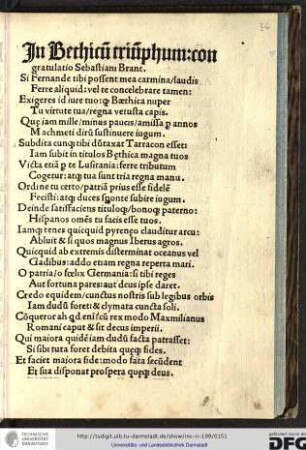 In Bethicũ triũphum: con
gratulatio Sebastiani Brant.
Si Fernande tibi possent mea carmina/laudis
Ferre aliquid: vel te concelebrare tamen:
Exigeres id iure tuo: Bœthica nuper
Tu virtute tua/regna vetusta capis.
Quę iam mille/minus paucęs/amissa ꝑ annos
Machmeti dirũ sustinuere iugum.
Subdita cunq̃ tibi dũtaxat Tarracon esset:
Iam subit in titulos Bęthica magna tuos
Victa etiã ꝑ te Lusitania: ferre tributum
Cogetur: atq̃ tua sunt tria regna manu.
Ordine tu certo/patriã prius esse fidelẽ
Fecisti: atq̃ duces sponte subire iugum.
Deinde satisfaciens tituloq̃/bonoq̃ paterno:
Hispanos omẽs tu facis esse tuos.
Iamq̃ tenes quicquid pyrenęo clauditur arcu:
Abluit & si quos magnus Iberus agros.
Quicquid ab extremis disterminat oceanus vel
Gadibus: addo etiam regna reperta mari.
O patria/o fœlix Germania: si tibi reges
Aut fortuna pares: aut deus ipse daret.
Credo equidem/cunctus nostris sub legibus orbis
Iam dudũ foret: & clymata cuncta soli.
Cõqueror ah qd eni? cũ rex modo Maxmilianus
Romani caput & sit decus imperii.
Qui maiora quidẽ iam dudũ facta patrasset:
Si sibi tuta foret debita quęq̃ fides.
Et faciet maiora fide: modo fata secũdent
Et sua disponat prospera quęq̃ deus.
TECHNISCHE UNIVERSITÄT DARMSTADT
http://tudigit.ulb.tu-darmstadt.de/show/inc-iv-199/0151
Universitäts- und Landesbibliothek Darmstadt
gefördert durch die
DFG